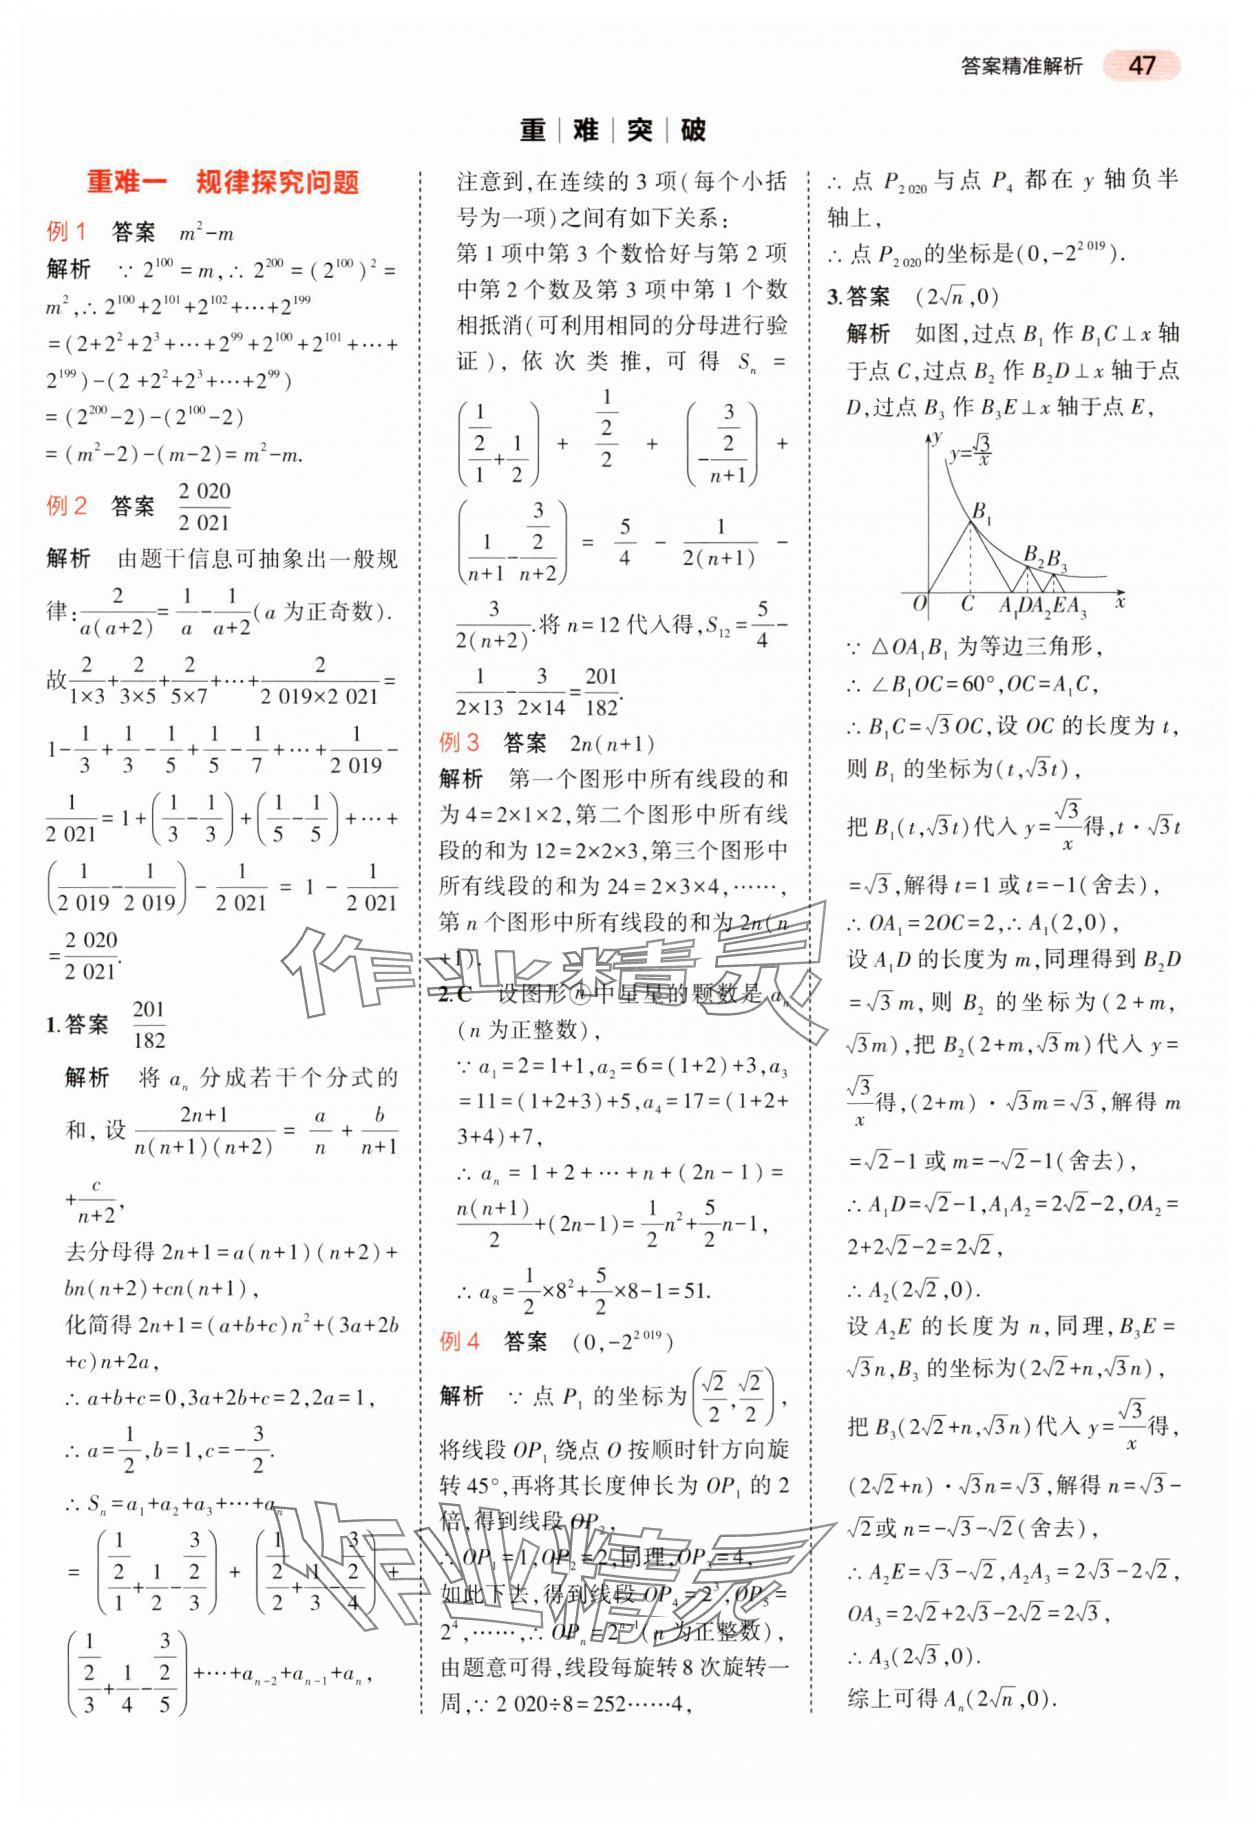 答案精准解析 47
重|难|突|破
重难一 规律探究问题
例1 答案 m²-m
解析 ∵2¹⁰⁰=m,∴2²⁰⁰=(2¹⁰⁰)²=
m²,∴2¹⁰⁰+2¹⁰¹+2¹⁰²+…+2¹⁹⁹
=(2+2²+2³+…+2⁹⁹+2¹⁰⁰+2¹⁰¹+…+
2¹⁹⁹)-(2+2²+2³+…+2⁹⁹)
=(2²⁰⁰-2)-(2¹⁰⁰-2)
=(m²-2)-(m-2)=m²-m.
例2 答案 2 020/2 021
解析 由题干信息可抽象出一般规
律:2/(a(a+2))=1/a-1/(a+2)(a为正奇数).
故2/(1×3)+2/(3×5)+2/(5×7)+…+2/(2 019×2 021)=
1-1/3+1/3-1/5+1/5-1/7+…+1/2 019-
1/2 021=1+(1/3-1/3)+(1/5-1/5)+…+
(1/2 019-1/2 019)-1/2 021=1-1/2 021
=2 020/2 021.
1.答案 201/182
解析 将aₙ分成若干个分式的
和,设(2n+1)/(n(n+1)(n+2))=a/n+b/(n+1)
+c/(n+2),
去分母得2n+1=a(n+1)(n+2)+
bn(n+2)+cn(n+1),
化简得2n+1=(a+b+c)n²+(3a+2b
+c)n+2a,
∴a+b+c=0,3a+2b+c=2,2a=1,
∴a=1/2,b=1,c=-3/2.
∴Sₙ=a₁+a₂+a₃+…+aₙ
=((1/2)/1+1/2-(3/2)/3)+((1/2)/2+1/3-(3/2)/4)+
((1/2)/3+1/4-(3/2)/5)+…+aₙ₋₂+aₙ₋₁+aₙ,
注意到,在连续的3项(每个小括
号为一项)之间有如下关系:
第1项中第3个数恰好与第2项
中第2个数及第3项中第1个数
相抵消(可利用相同的分母进行验
证),依次类推,可得Sₙ=
((1/2)/1+1/2)+(1/2)/2+(-(3/2)/(n+1))+
(1/(n+1)-(3/2)/(n+2))=5/4-1/(2(n+1))-
3/(2(n+2)).将n=12代入得,S₁₂=5/4-
1/(2×13)-3/(2×14)=201/182.
例3 答案 2n(n+1)
解析 第一个图形中所有线段的和
为4=2×1×2,第二个图形中所有线
段的和为12=2×2×3,第三个图形中
所有线段的和为24=2×3×4,……,
第n个图形中所有线段的和为2n(n
+1).
2.C 设图形n中星星的颗数是aₙ
(n为正整数),
∵a₁=2=1+1,a₂=6=(1+2)+3,a₃
=11=(1+2+3)+5,a₄=17=(1+2+
3+4)+7,
∴aₙ=1+2+…+n+(2n-1)=
n(n+1)/2+(2n-1)=1/2n²+5/2n-1,
∴a₈=1/2×8²+5/2×8-1=51.
例4 答案 (0,-2² ⁰¹⁹)
解析 ∵点P₁的坐标为(√2/2,√2/2),
将线段OP₁绕点O按顺时针方向旋
转45°,再将其长度伸长为OP₁的2
倍,得到线段OP₂,
∴OP₁=1,OP₂=2,同理,OP₃=4,
如此下去,得到线段OP₄=2³,OP₅=
2⁴,……,∴OPₙ=2ⁿ⁻¹(n为正整数),
由题意可得,线段每旋转8次旋转一
周,∵2 020÷8=252……4,
∴点P₂ ₀₂₀与点P₄都在y轴负半
轴上,
∴点P₂ ₀₂₀的坐标是(0,-2² ⁰¹⁹).
3.答案 (2√n,0)
解析 如图,过点B₁作B₁C⊥x轴
于点C,过点B₂作B₂D⊥x轴于点
D,过点B₃作B₃E⊥x轴于点E,
y y=√3/x
B₁
B₂ B₃
O C A₁ D A₂ E A₃ x
∵△OA₁B₁为等边三角形,
∴∠B₁OC=60°,OC=A₁C,
∴B₁C=√3OC,设OC的长度为t,
则B₁的坐标为(t,√3t),
把B₁(t,√3t)代入y=√3/x得,t·√3t
=√3,解得t=1或t=-1(舍去),
∴OA₁=2OC=2,∴A₁(2,0),
设A₁D的长度为m,同理得到B₂D
=√3m,则B₂的坐标为(2+m,
√3m),把B₂(2+m,√3m)代入y=
√3/x得,(2+m)·√3m=√3,解得m
=√2-1或m=-√2-1(舍去),
∴A₁D=√2-1,A₁A₂=2√2-2,OA₂=
2+2√2-2=2√2,
∴A₂(2√2,0).
设A₂E的长度为n,同理,B₃E=
√3n,B₃的坐标为(2√2+n,√3n),
把B₃(2√2+n,√3n)代入y=√3/x得,
(2√2+n)·√3n=√3,解得n=√3-
√2或n=-√3-√2(舍去),
∴A₂E=√3-√2,A₂A₃=2√3-2√2,
OA₃=2√2+2√3-2√2=2√3,
∴A₃(2√3,0).
综上可得Aₙ(2√n,0).
作业精灵
作业精灵